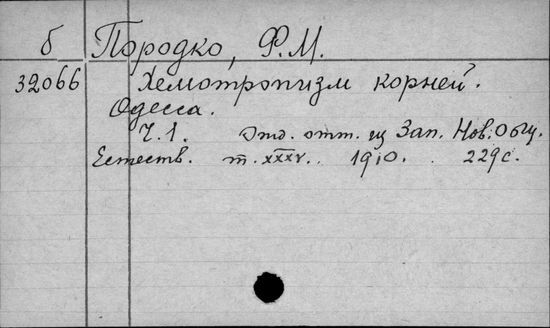 б Породко, Ф.М.
32066 Хемотропизм корней.
Одесса.
Ч.1. Отд. отт. из Зап. Нов. Общ.
Естеств. т. XXXV. 1910. 229 с.